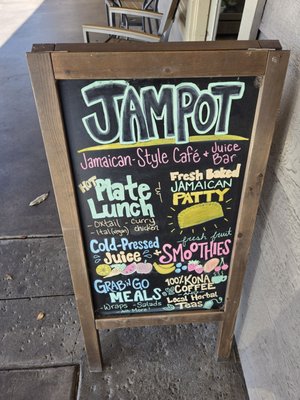 JAMPOT
Jamaican-Style Café + Juice Bar
HOT Plate Lunch &
- Oxtail - curry
- Ital (vegan) chicken
Fresh Baked
JAMAICAN
PATTY
Cold-Pressed
Juice +
fresh fruit
SMOOTHIES
GRAB N GO
MEALS
- Wraps - Salads
and More
100% KONA
COFFEE
Local Herbal
Teas